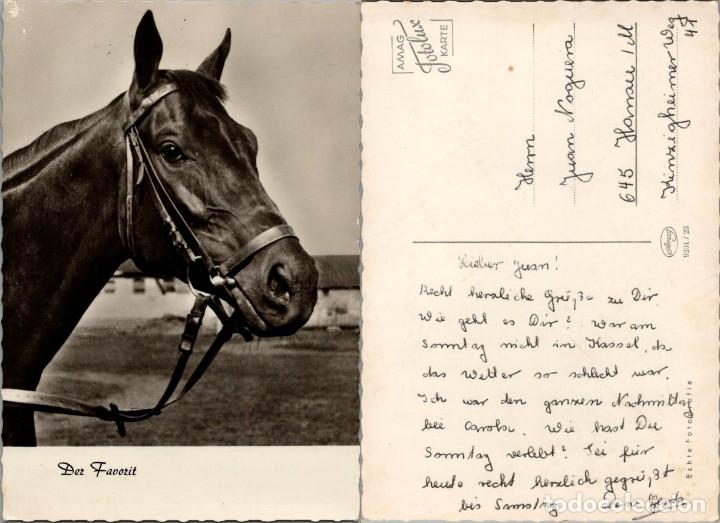 Der Favorit
AMAG
Fotolux
KARTE
Herrn
Juan Noguera
645 Hanau 1/M
Kinzigheimer Weg
9201/23
Lieber Juan!
Recht herzliche Grüße zu Dir.
Wie geht es Dir? War am
Sonntag nicht in Kassel, da
das Wetter so schlecht war.
Ich war den ganzen Nachmittag
bei Carola. Wie hast Du
Sonntag verlebt? Sei für
heute recht herzlich gegrüßt
bis Samstag
Echte Fotografie
todocoleccion